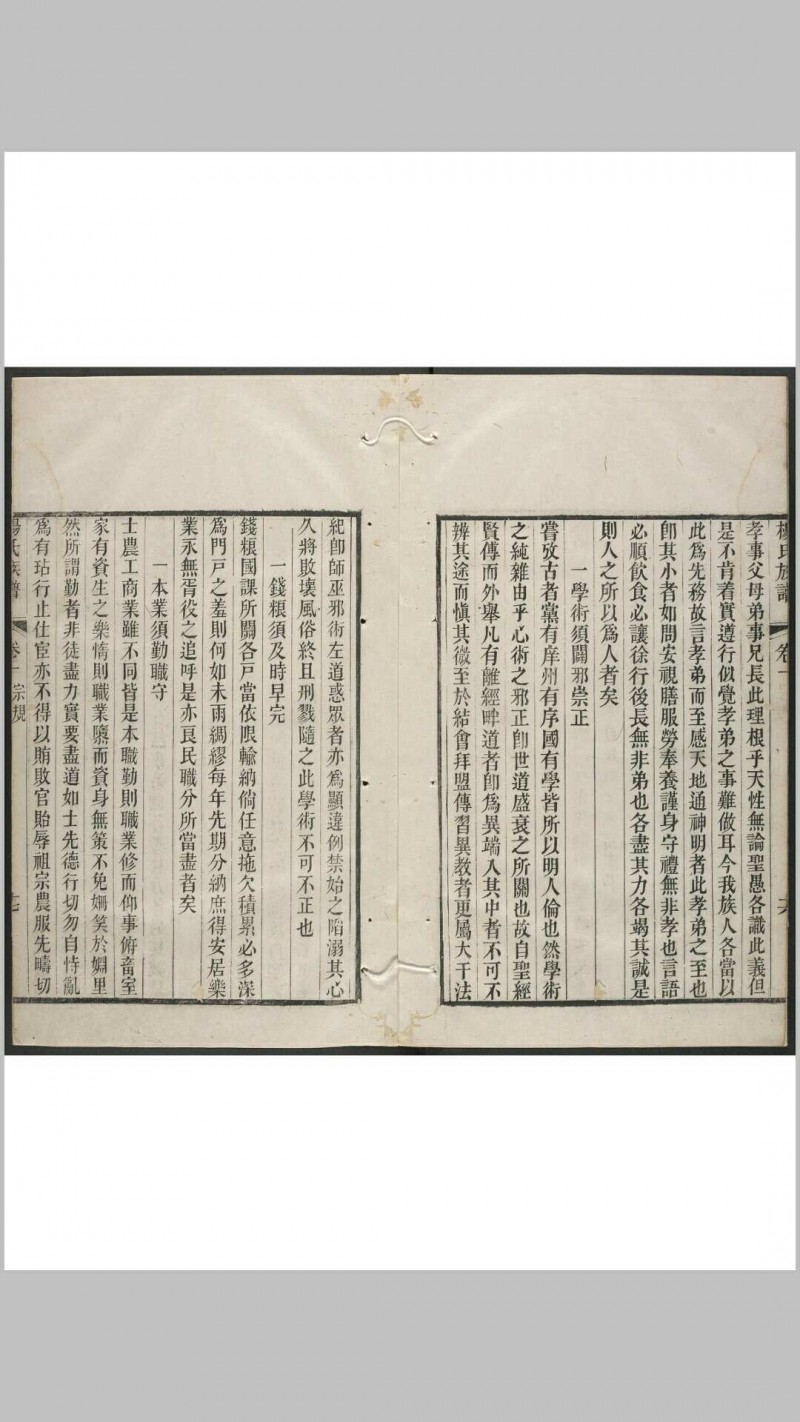 楊氏族譜 卷一 六
孝事父母弟事兄長此理根乎天性無論聖愚各識此義但
是不肯着實遵行似覺孝弟之事難做耳今我族人各當以
此爲先務故言孝弟而至感天地通神明者此孝弟之至也
卽其小者如問安視膳服勞奉養謹身守禮無非孝也言語
必順飲食必讓徐行後長無非弟也各盡其力各竭其誠是
則人之所以爲人者矣
一學術須闢邪崇正
嘗攷古者黨有庠州有序國有學皆所以明人倫也然學術
之純雜由乎心術之邪正卽世道盛衰之所關也故自聖經
賢傳而外舉凡有離經畔道者卽爲異端入其中者不可不
辨其途而愼其微至於結會拜盟傳習異教者更屬大干法
紀卽師巫邪術左道惑眾者亦爲顯違例禁始之陷溺其心
久將敗壞風俗終且刑戮隨之此學術不可不正也
一錢粮須及時早完
錢粮國課所關各戶當依限輸納倘任意拖欠積累必多深
爲門戸之羞則何如未雨綢繆每年先期分納庶得安居樂
業永無胥役之追呼是亦良民職分所當盡者矣
一本業須勤職守
士農工商業雖不同皆是本職勤則職業修而仰事俯畜室
家有資生之樂惰則職業隳而資身無策不免姍笑於姻里
然所謂勤者非徒盡力實要盡道如士先德行切勿自恃亂
爲有玷行止仕宦亦不得以賄敗官貽辱祖宗農服先疇切
楊氏族譜 卷一 宗規 七